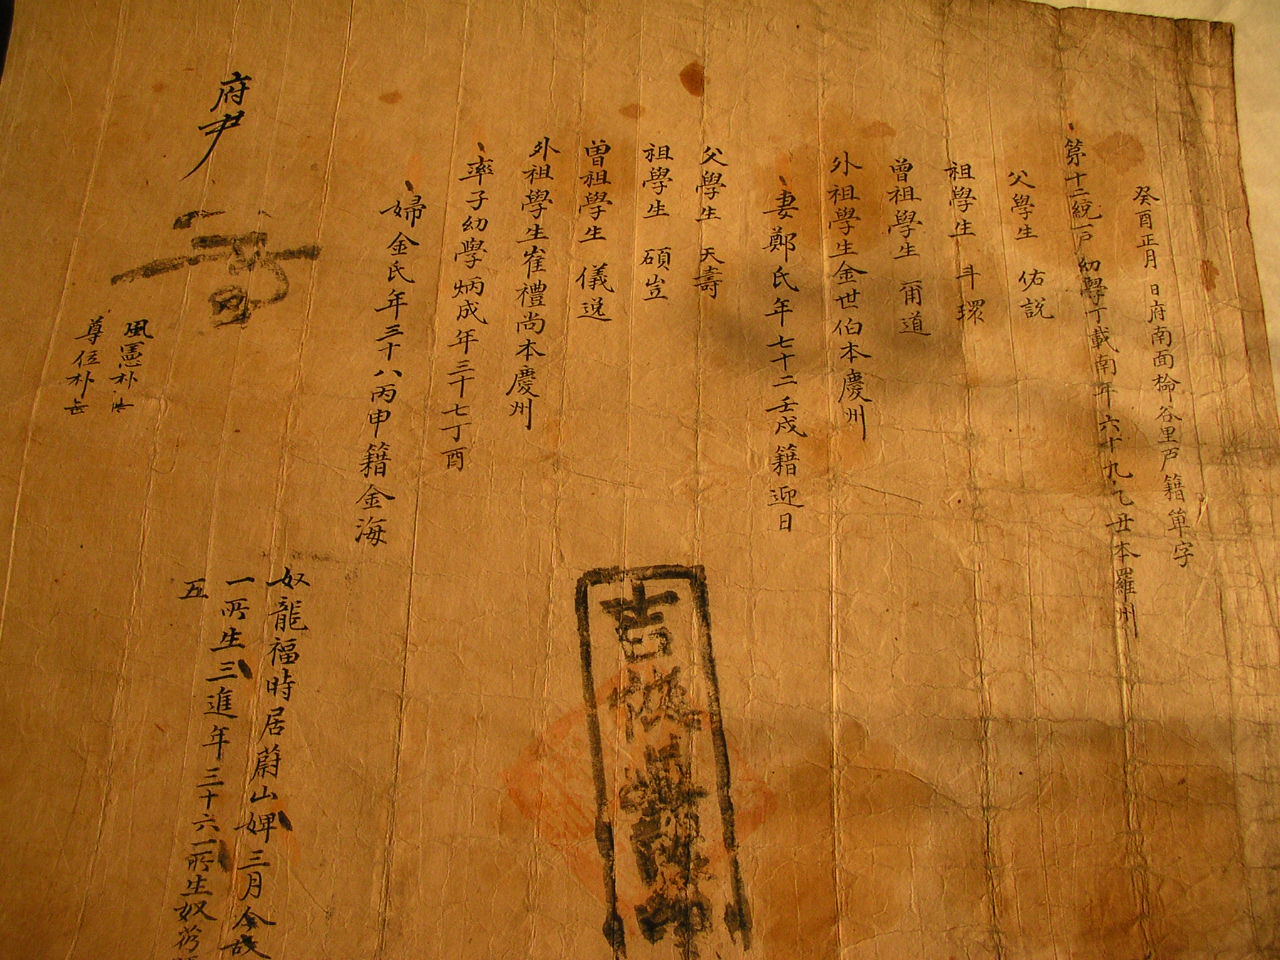 癸酉正月 日府南面 谷里戶籍單字
第十二統一戶幼學丁載南年六十九乙丑本羅州
父學生 佑說
祖學生 斗環
曾祖學生 爾道
外祖學生金世伯本慶州
妻鄭氏年七十二壬戌籍迎日
父學生 天壽
祖學生 碩岦
曾祖學生 儀逸
外祖學生崔禮尚本慶州
率子幼學炳成年三十七丁酉
婦金氏年三十八丙申籍金海
奴龍福時居蔚山婢三月今故
一所生三進年三十六二所生奴
五
府尹
風憲朴
尊位朴